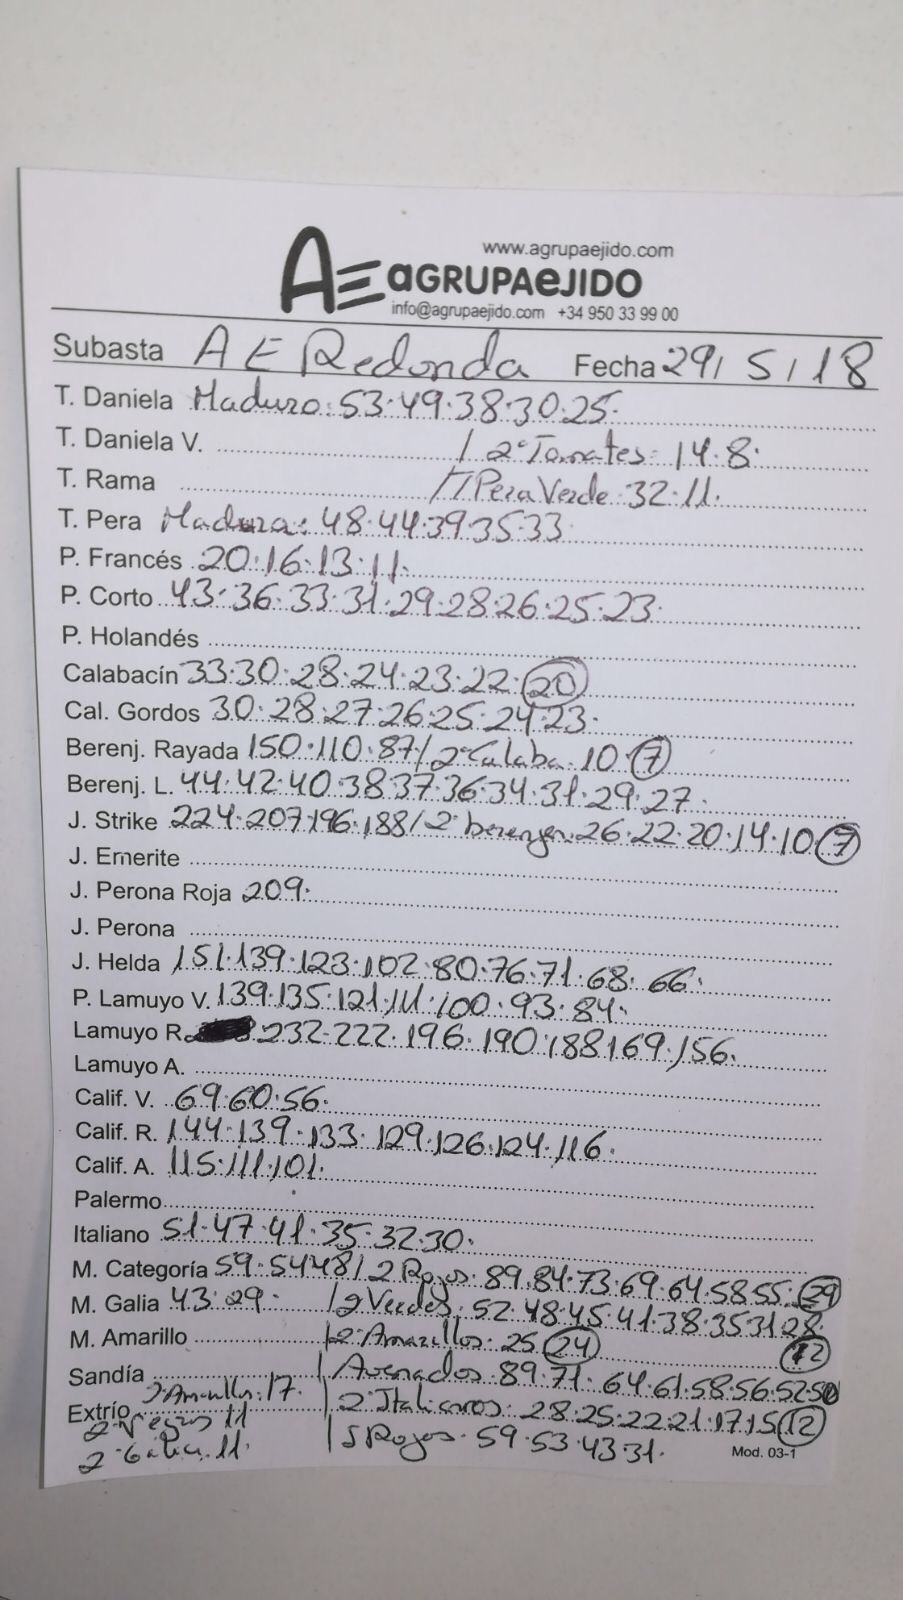 www.agrupaejido.com
AE aGRUPAeJIDO
info@agrupaejido.com +34 950 33 99 00
Subasta A E Redonda Fecha 29/ 5/18
T. Daniela Maduro: 53.49.38.30.25.
T. Daniela V. / 2ª Tomates: 14.8.
T. Rama /T Pera Verde: 32.11.
T. Pera Madura: 48.44.39.35.33.
P. Francés 20.16.13.11.
P. Corto 43.36.33.31.29.28.26.25.23.
P. Holandés
Calabacín 33.30.28.24.23.22.20
Cal. Gordos 30.28.27.26.25.24.23.
Berenj. Rayada 150.110.87/2ª Calaba. 10.7
Berenj. L. 44.42.40.38.37.36.34.31.29.27.
J. Strike 224.207.196.188/2ª berenjen. 26.22.20.14.10.7
J. Emerite
J. Perona Roja 209.
J. Perona
J. Helda 151.139.123.102.80.76.71.68.66.
P. Lamuyo V. 139.135.121.111.100.93.84.
Lamuyo R. 232.222.196.190.188.169.156.
Lamuyo A.
Calif. V. 69.60.56.
Calif. R. 144.139.133.129.126.124.116.
Calif. A. 115.111.101.
Palermo
Italiano 51.47.41.35.32.30.
M. Categoría 59.54.48/2 Rojos. 89.84.73.69.64.58.55.29
M. Galia 43.29. /2 Verdes. 52.48.45.41.38.35.31.28
M. Amarillo /2ª Amarillos. 25.24 12
Sandía / Asurados 89.71.64.61.58.56.52.50
Extrío 2 Amarillo. 17. /2ª Italianos: 28.25.22.21.17.15.12
2 Negras 11
2 Galia. 11. /S Rojos. 59.53.43.31. Mod. 03-1